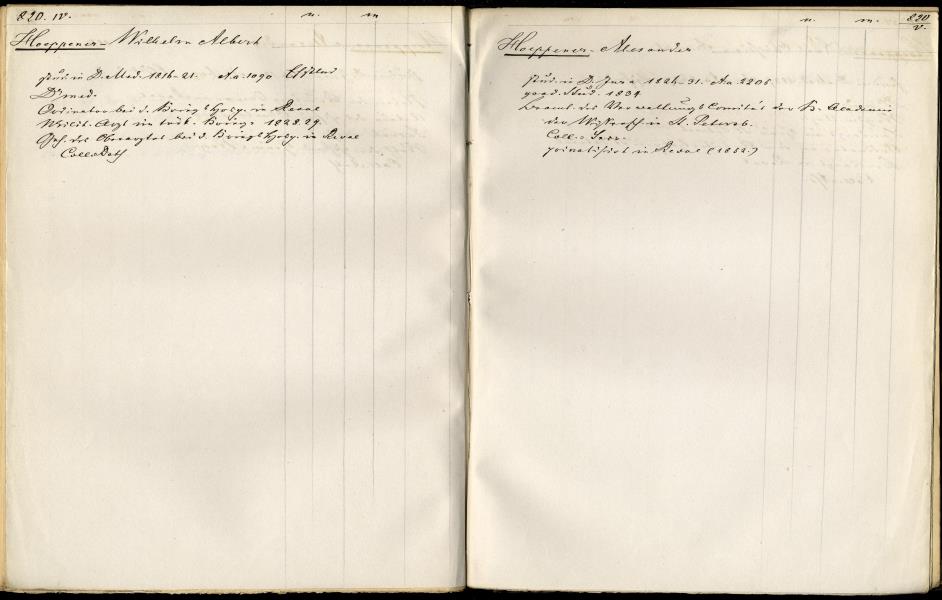 820. IV. n. m
Hoeppener- Wilhelm Albert
stud. in D. Med. 1816-21. A.a. 1090 Estland
Dr med.
Ordinator bei d. Kriegs Hosp. in Reval
Milit. Arzt im türk. Kriege 1828.29.
Geh. des Oberarztes bei d. Kriegs Hosp. in Reval
Coll. Rath
n. m. 820 V.
Hoeppener- Alexander
stud. in D. Jura 1824-31. A.a. 2206
grad. Stud. 1834.
Beamt. des Verwaltungs Comité's der K. Academie
der Wissensch. in St. Petersb.
Coll. Secr.
privatisirt in Reval (1852.)